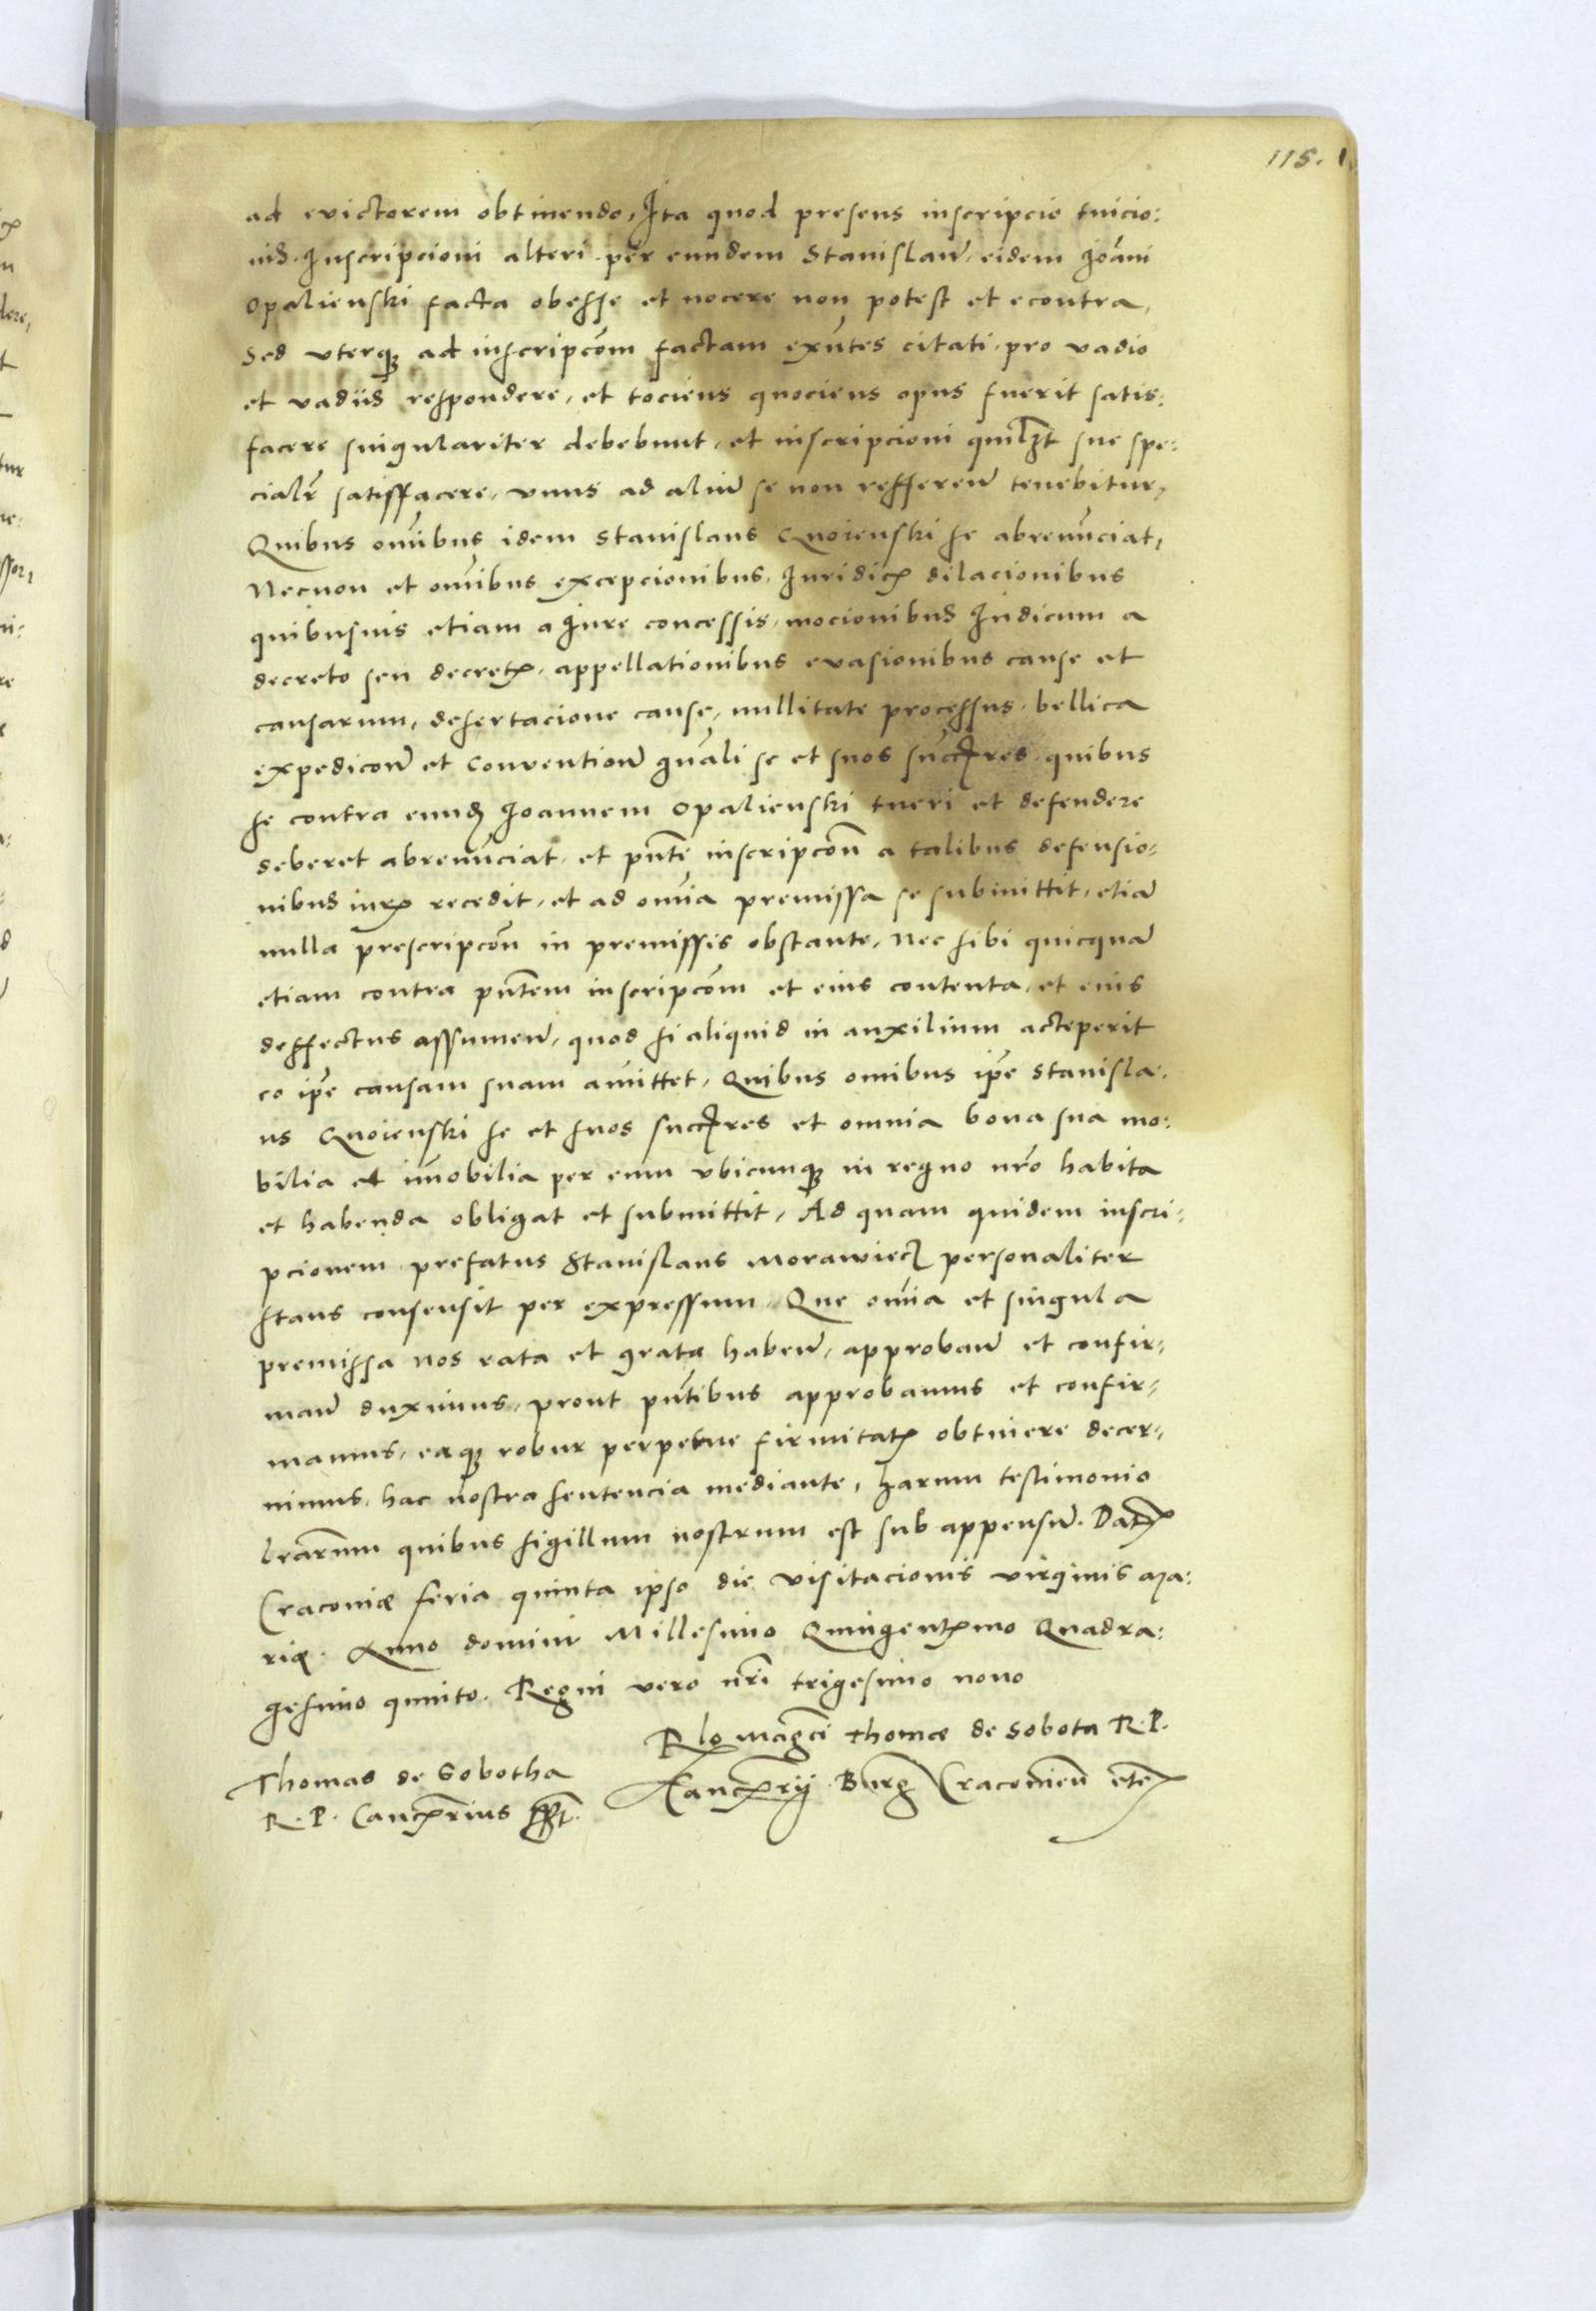 115.
ad evictorem obtinendo, Ita quod presens inscripcio tuicio:
nis. Inscripcioni alteri per eundem Stanislaū eidem Joāni
Opalienski facta obesse et nocere non potest et econtra,
Sed uterq3 ad inscripcōm factam exūtes citati pro vadio
et vadiis respondere, et tociens quociens opus fuerit satis:
facere singulariter debebunt, et inscripcioni sue spe:
cialr̄ satisffacere, unus ad aliū se non refferen̄ tenebitur,
Quibus om̄ibus idem Stanislaus Gnoienski se abrenūciat,
Necnon et om̄ibus excepcionibus, Juridicꝭ dilacionibus
quibusuis etiam a Jure concessis, mocionibus Judicum a
decreto seu decretꝭ, appellationibus evasionibus cause et
causarum, desertacione cause, nullitate processus, bellica
expedicōn̄ et conventiōn̄ gn̄ali se et suos succ̄res, quibus
se contra eund̄ Joannem Opalienski tueri et defendere
deberet abrenūciat, et pn̄te inscripcōn̄ a talibus defensio:
nibus iurꝭ recedit, et ad om̄ia premissa se submittit, etiā
nulla prescripcōn̄ in premissis obstante, Nec sibi quicquā
etiam contra pn̄tem inscripcōm et eius contenta, et eius
deffectus assumen̄, quod si aliquid in auxilium acceperit
eo ip̄e causam suam amittet, Quibus omībus ip̄e Stanisla:
us Gnoienski se et suos succ̄res et omnia bona sua mo:
bilia et im̄obilia per eum ubicunq3 in regno nr̄o habita
et habenda obligat et submittit, Ad quam quidem inscri:
pcionem prefatus Stanislaus Morawiecz personaliter
stans consensit per expressum, Que om̄ia et singula
premissa nos rata et grata haben̄, approban̄ et confir:
man̄ duximus, prout pn̄tibus approbamus et confir:
mamus, eaq3 robur perpetue firmitatꝭ obtinere decer:
nimus, hac nostra sentencia mediante, Harum testimonio
lrārum quibus sigillum nostrum est sub appensū. Datꝭ
Cracoviæ feria quinta ipso die visitacionis virginis Ma:
riæ. Anno domini Millesimo Quingentꝭmo Quadra:
gesimo quinto. Regni vero nr̄i trigesimo nono
Rlo maḡci Thomæ de Sobota R. P.
Cancꝭrij. Burg Cracovien̄ etc
Thomas de Sobotha
R. P. Cancꝭrius sst.